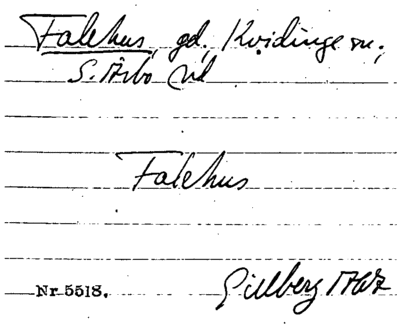 Falehus, gd, Kvidinge sn,
S. Åsbo hd
Falehus
Nr 5518. Gillberg